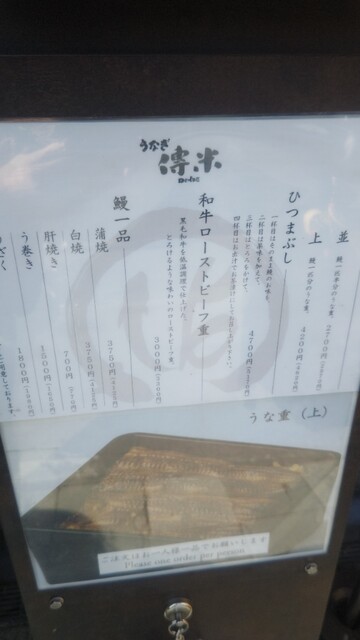 うなぎ
傳米
並
鰻一匹分のうな重。
2700円
上
4200円
ひつまぶし
一杯目はそのまま鰻のお味を、
二杯目は薬味を加えて、
三杯目はとろろをかけて、
4700円
和牛ローストビーフ重
黒毛和牛を低温調理で仕上げた、
とろけるような味わいのローストビーフ重。
3000円
鰻一品
蒲焼
3750円
白焼
3750円
700円
肝焼き
1500円
う巻き
1800円
うざく
うな重（上）
ご注文はお一人様一品でお願いします
Please one order per person